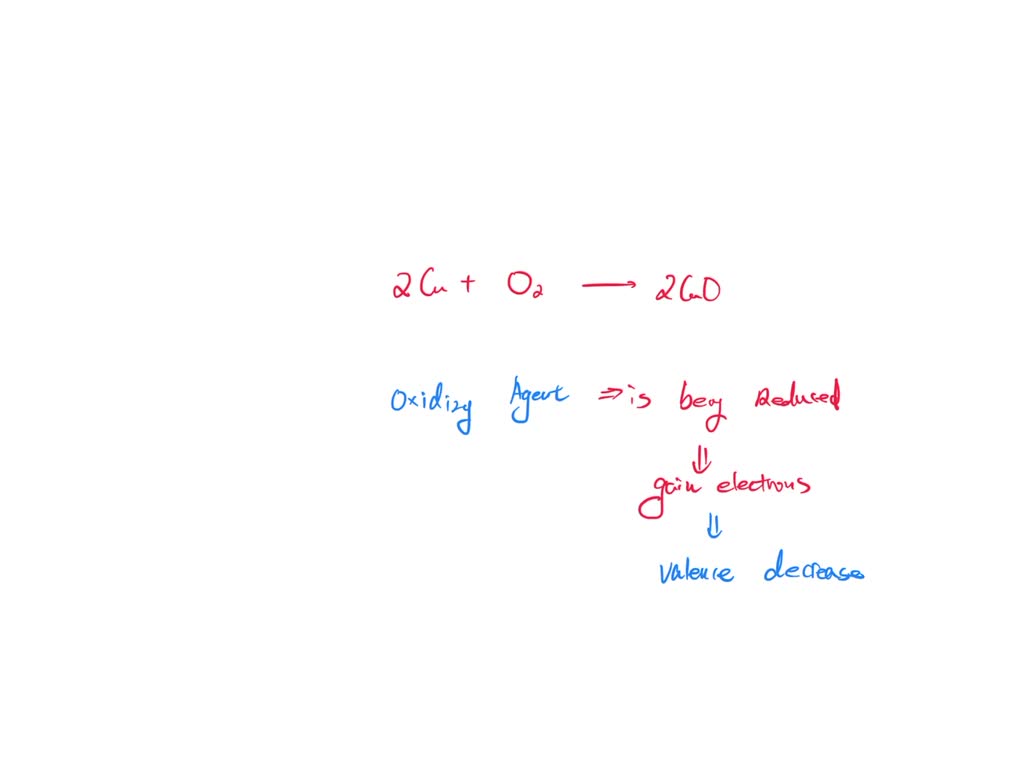 2Cu + O₂ → 2CuO
Oxidizy Agent ⇒ is beg Reduced
⇓
gain electrons
⇓
valence decrease